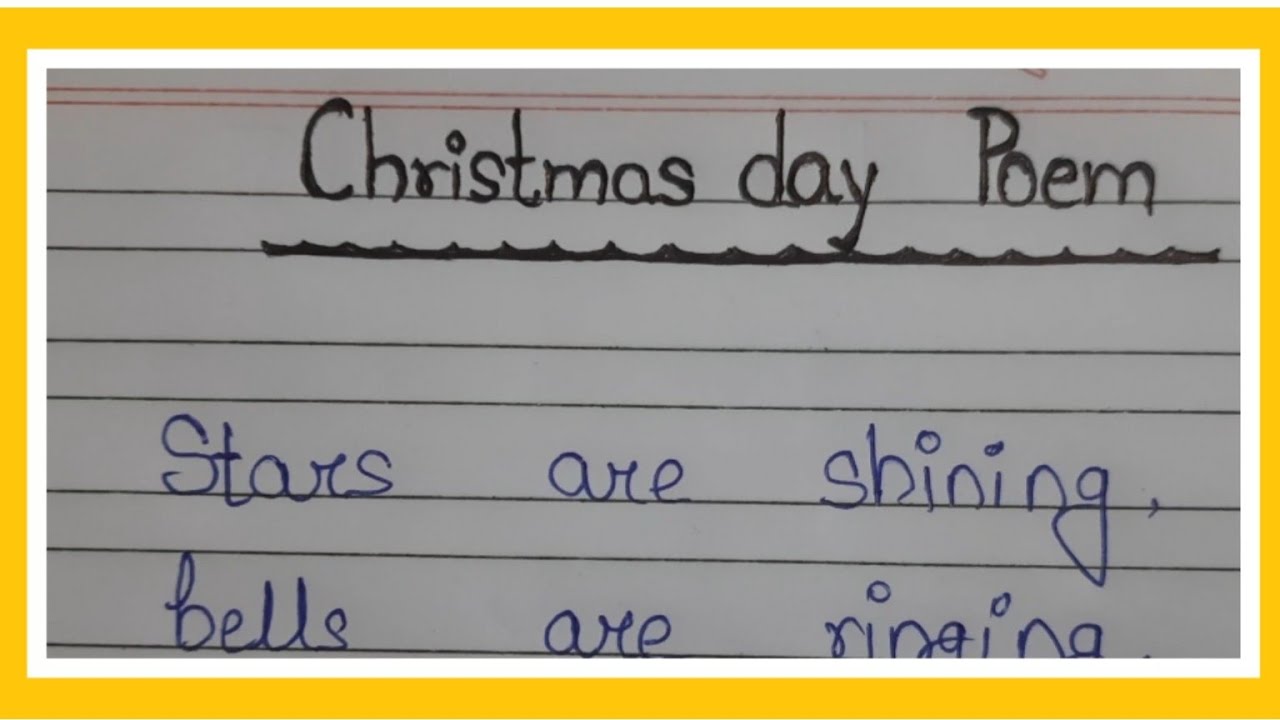 Christmas day Poem
Stars are shining,
bells are ringing,